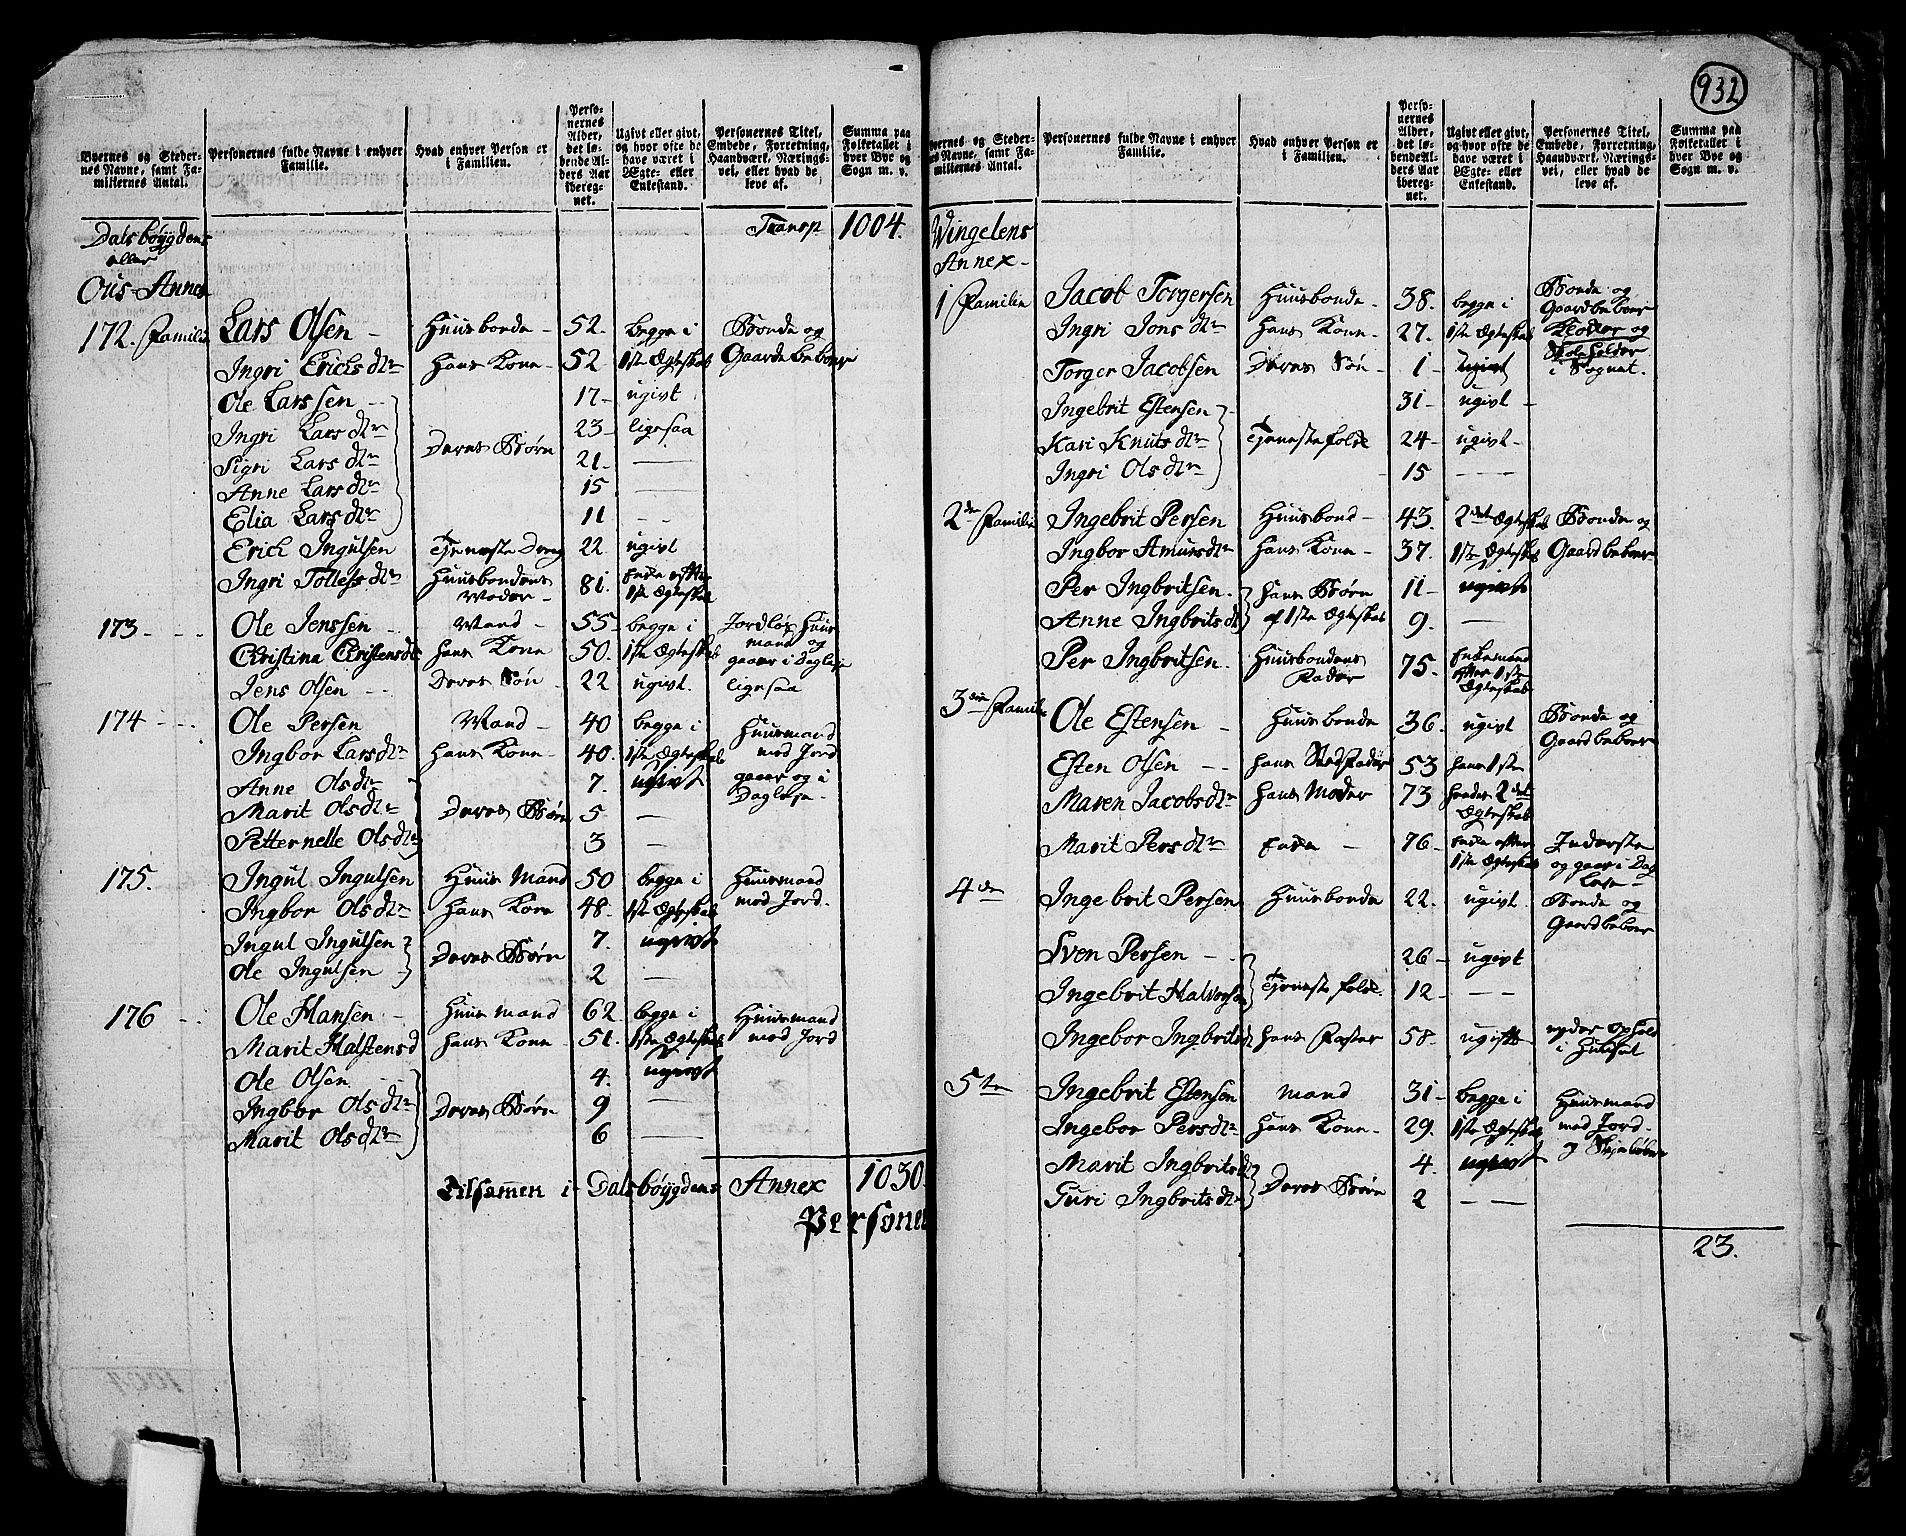 932
Byernes og Steder-
nes Navne, samt Fa-
miliernes Antal.
Personernes fulde Navne i enhver
Familie.
Hvad enhver Person er
i Familien.
Perso-
nernes
Alder,
det lø-
bende Al-
ders Aar
ibereg-
net.
Ugivt eller givt,
og hvor ofte de
have været i
Ægte- eller
Enkestand.
Personernes Titel,
Embede, Forretning,
Haandværk, Nærings-
vei, eller hvad de
leve af.
Summa paa
Folketallet i
hver Bye og
Sogn m. v.
Dalsbøygdens Transp 1004.
eller
Ous-Annex
172. Familie Lars Olsen Huusbonde 52. begge i Bonde og
Ingri Erichsdtr hans Kone 52 1ste Ægteskab Gaardebeboer
Ole Larssen 17 ugivt
Ingri Larsdtr 23 ligesaa
Deres Børn
Sigri Larsdtr 21 —
Anne Larsdtr 15 —
Elia Larsdtr 11 —
Erich Ingulsen Tjeneste Dreng 22 ugivt
Ingri Tollefsdtr Huusbondens Moder 81. Enke efter 1ste Ægteskab
173 Ole Jenssen Mand 55 begge i Jordløs Huus
Christina Christensd hans Kone 50. 1ste Ægteskab mand og gaaer i Dagleje
Jens Olsen Deres Søn 22 ugivt. ligesaa
174 Ole Persen Mand 40 begge i Huusmand
Ingbor Larsdtr hans Kone 40. 1ste Ægteskab med Jord
Anne Olsdtr 7. ugivt gaaer og i
Marit Olsdtr Deres Børn 5 — Dagleje
Petternelle Olsdtr 3 —
175. Ingul Ingulsen Huus Mand 50 begge i Huusmand
Ingbor Olsdtr hans Kone 48. 1ste Ægteskab med Jord.
Ingul Ingulsen 7. ugivt
Deres Børn
Ole Ingulsen 2 —
176 Ole Hansen Huusmand 62 begge i Huusmand
Marit Halstensd hans Kone 51. 1ste Ægteskab med Jord
Ole Olsen 4. ugivt
Ingbor Olsdtr Deres Børn 9 —
Marit Olsdtr 6 —
Tilsamen i Dalsbøygdens Annex 1030.
Personer
Byernes og Steder-
nes Navne, samt Fa-
miliernes Antal.
Personernes fulde Navne i enhver
Familie.
Hvad enhver Person er
i Familien.
Perso-
nernes
Alder,
det lø-
bende Al-
ders Aar
ibereg-
net.
Ugivt eller givt,
og hvor ofte de
have været i
Ægte- eller
Enkestand.
Personernes Titel,
Embede, Forretning,
Haandværk, Nærings-
vei, eller hvad de
leve af.
Summa paa
Folketallet i
hver Bye og
Sogn m. v.
Wingelens
Annex
1 Familie Jacob Torgersen Huusbonde 38. begge i Bonde og Gaardbeboer
Ingri Jonsdtr hans Kone 27. 1ste Ægteskab Klokker og
Torger Jacobsen Deres Søn 1 ugivt Skoleholder i Sognet.
Ingebrit Estensen 31 ugivt
Kari Knutsdtr Tjenestefolk 24 ugivt
Ingri Olsdtr 15 —
2den Familie Ingebrit Persen Huusbond 43. 2det Ægteskab Bonde og
Ingbor Amunsdtr hans Kone 37. 1ste Ægteskab Gaardbeboer
Per Ingbritsen. hans Børn 11 ugivt
Anne Ingbritsdt af 1ste Ægteskab 9. —
Per Ingbritsen. Huusbondens Fader 75. Enkemand efter 1ste Ægteskab
3die Familie Ole Estensen Huusbonde 36. ugivt Bonde og Gaardbeboer
Esten Olsen hans Stedfader 53 hans 1ste
Maren Jacobsdtr hans Moder 73 hendes 2det Ægteskab
Marit Persdtr Enke 76 Enke efter 1ste Ægteskab Inderste og gaaer i Dag Leje
4de Ingebrit Persen Huusbonde 22. ugivt Bonde og Gaardbeboer
Sven Persen 26 ugivt
Tjenestefolk.
Ingebrit Halvorsen 12 —
Ingebor Ingbritsd hans Faster 58 ugift nyder ophold i Huuset
5te Ingebrit Estensen mand 31 begge i Huusmand
Ingebor Persdtr hans Kone 29. 1ste Ægteskab med Jord
Marit Ingbritsdt 4. ugivt og
Deres Børn
Guri Ingbritsdtr 2 —
23.